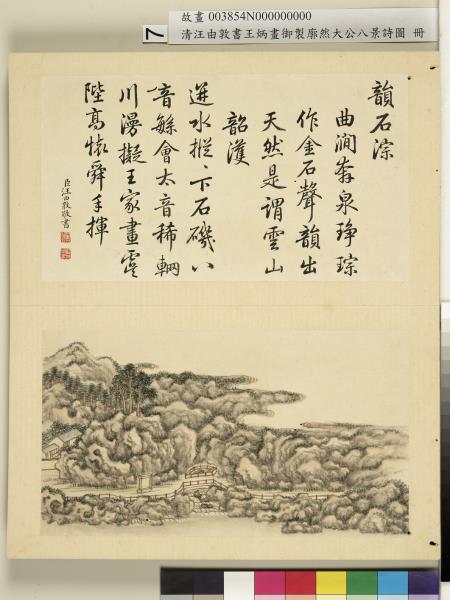 故畫 003854N000000000
清汪由敦書王炳畫御製廓然大公八景詩圖 冊
7
韻石淙
曲澗奔泉琤琮
作金石聲韻出
天然是謂雲山
韶濩
迸水摐摐下石磯八
音繇會太音稀輞
川漫擬王家畫虞
陛高懷舜手揮
臣汪由敦敬書